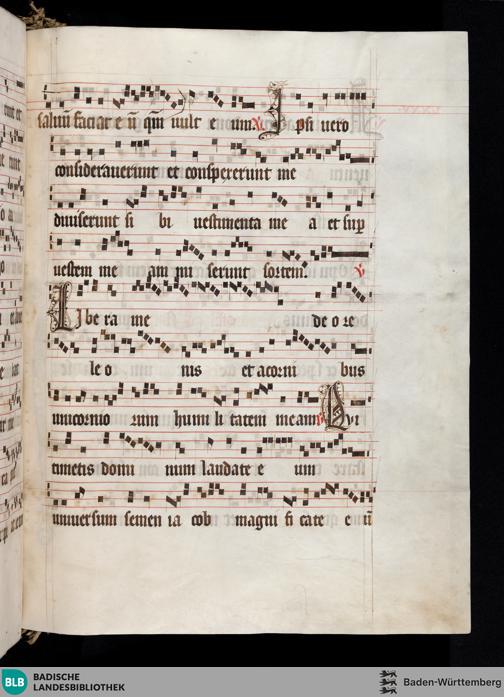 saluū faciat e ū qm̄ uult e um ℣. I psi uero
considerauerunt et conspexerunt me
diuiserunt si bi uestimenta me a et sup
uestem me am mi serunt sortem. ℣
L ibe ra me de o re
le o nis et a corni bus
unicornio rum humi li tatem meam ℣ Q ui
timetis domi num laudate e um
uniuersum semen ia cob magni fi cate e ū
BLB BADISCHE
LANDESBIBLIOTHEK
Baden-Württemberg